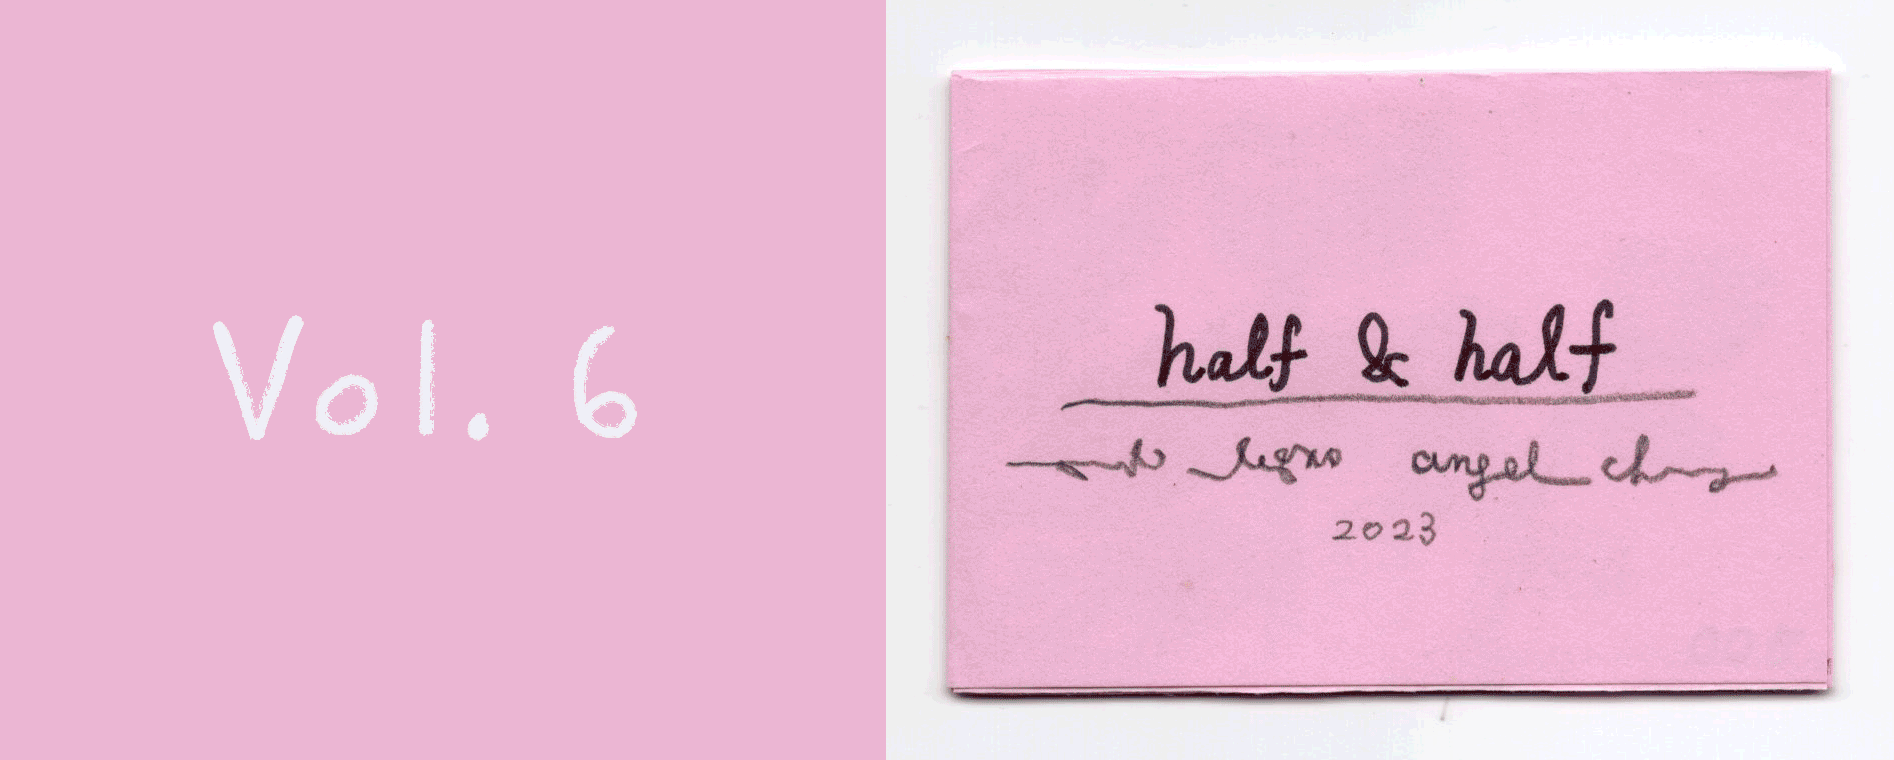 Vol. 6
half & half
angel chang
2023